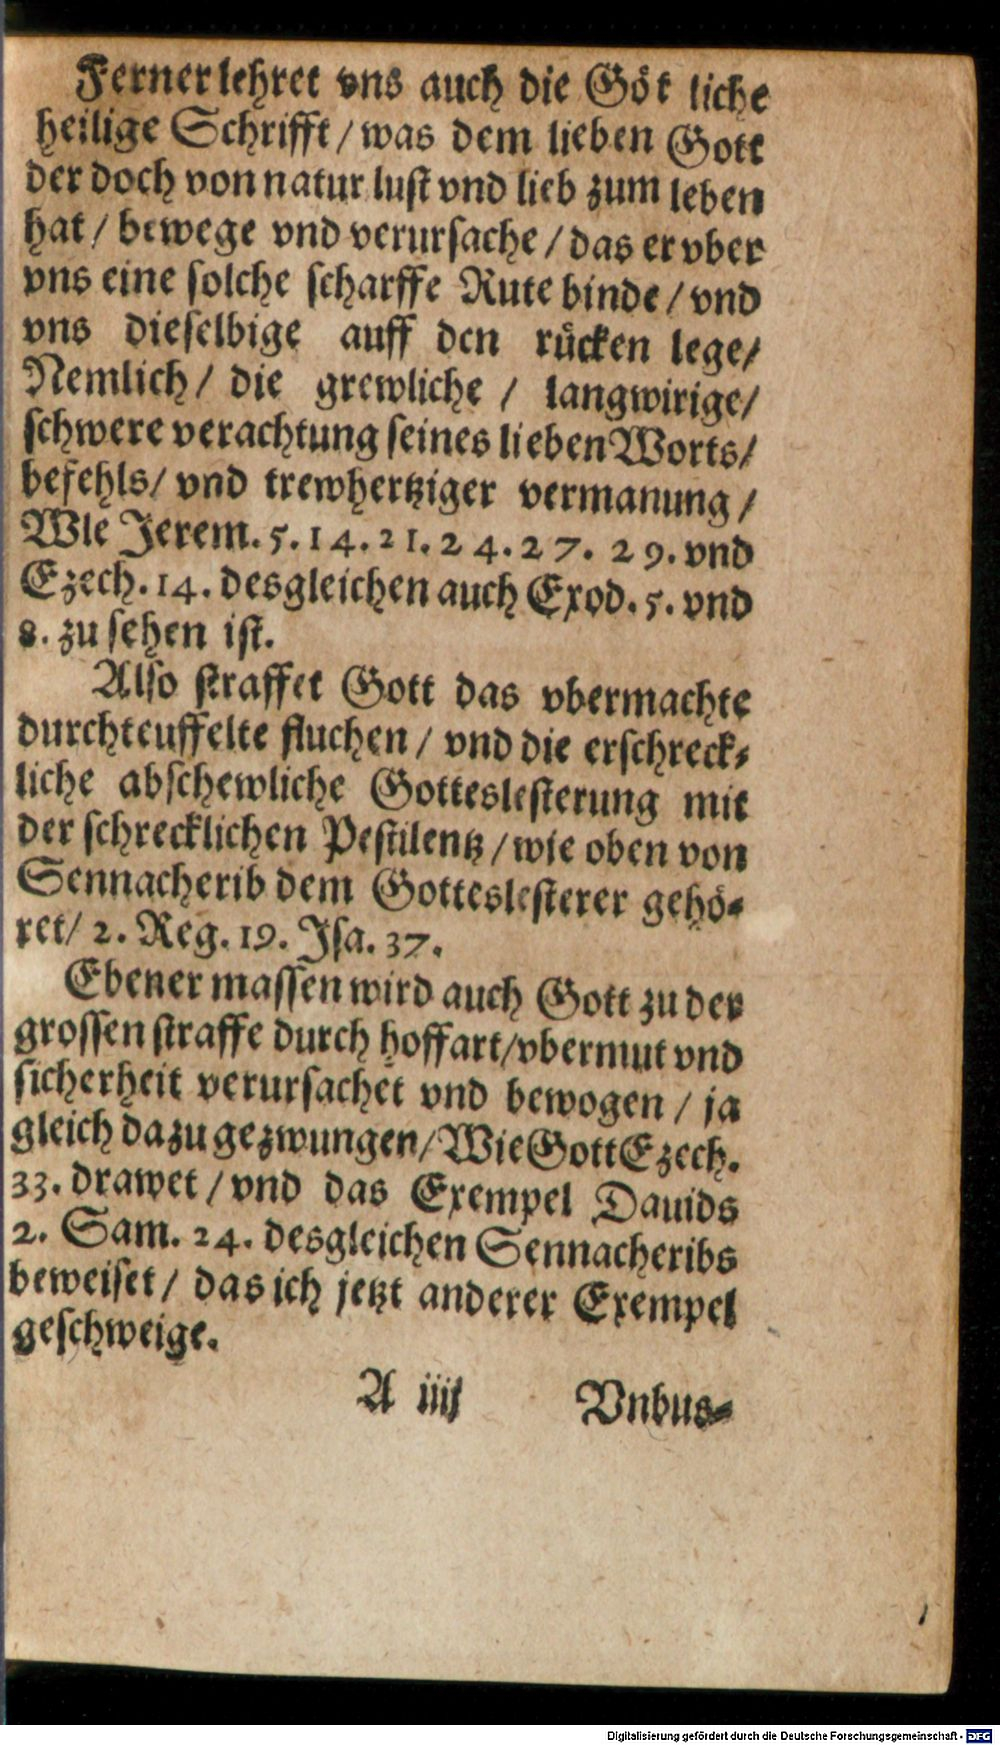 Ferner lehret vns auch die Göt liche
heilige Schrifft / was dem lieben Gott
der doch von natur lust vnd lieb zum leben
hat / bewege vnd verursache / das er vber
vns eine solche scharffe Rute binde / vnd
vns dieselbige auff den rücken lege /
Nemlich / die grewliche / langwirige /
schwere verachtung seines lieben Worts /
befehls / vnd trewhertziger vermanung /
Wie Jerem. 5. 14. 21. 24. 27. 29. vnd
Ezech. 14. desgleichen auch Exod. 5. vnd
8. zu sehen ist.
Also straffet Gott das vbermachte
durchteuffelte fluchen / vnd die erschreck-
liche abschewliche Gotteslesterung mit
der schrecklichen Pestilentz / wie oben von
Sennacherib dem Gotteslesterer gehö-
ret / 2. Reg. 19. Isa. 37.
Ebener massen wird auch Gott zu der
grossen straffe durch hoffart / vbermut vnd
sicherheit verursachet vnd bewogen / ja
gleich dazu gezwungen / Wie Gott Ezech.
33. drawet / vnd das Exempel Dauids
2. Sam. 24. desgleichen Sennacheribs
beweiset / das ich jetzt anderer Exempel
geschweige.
A iiij Vnbus-
Digitalisierung gefördert durch die Deutsche Forschungsgemeinschaft - DFG